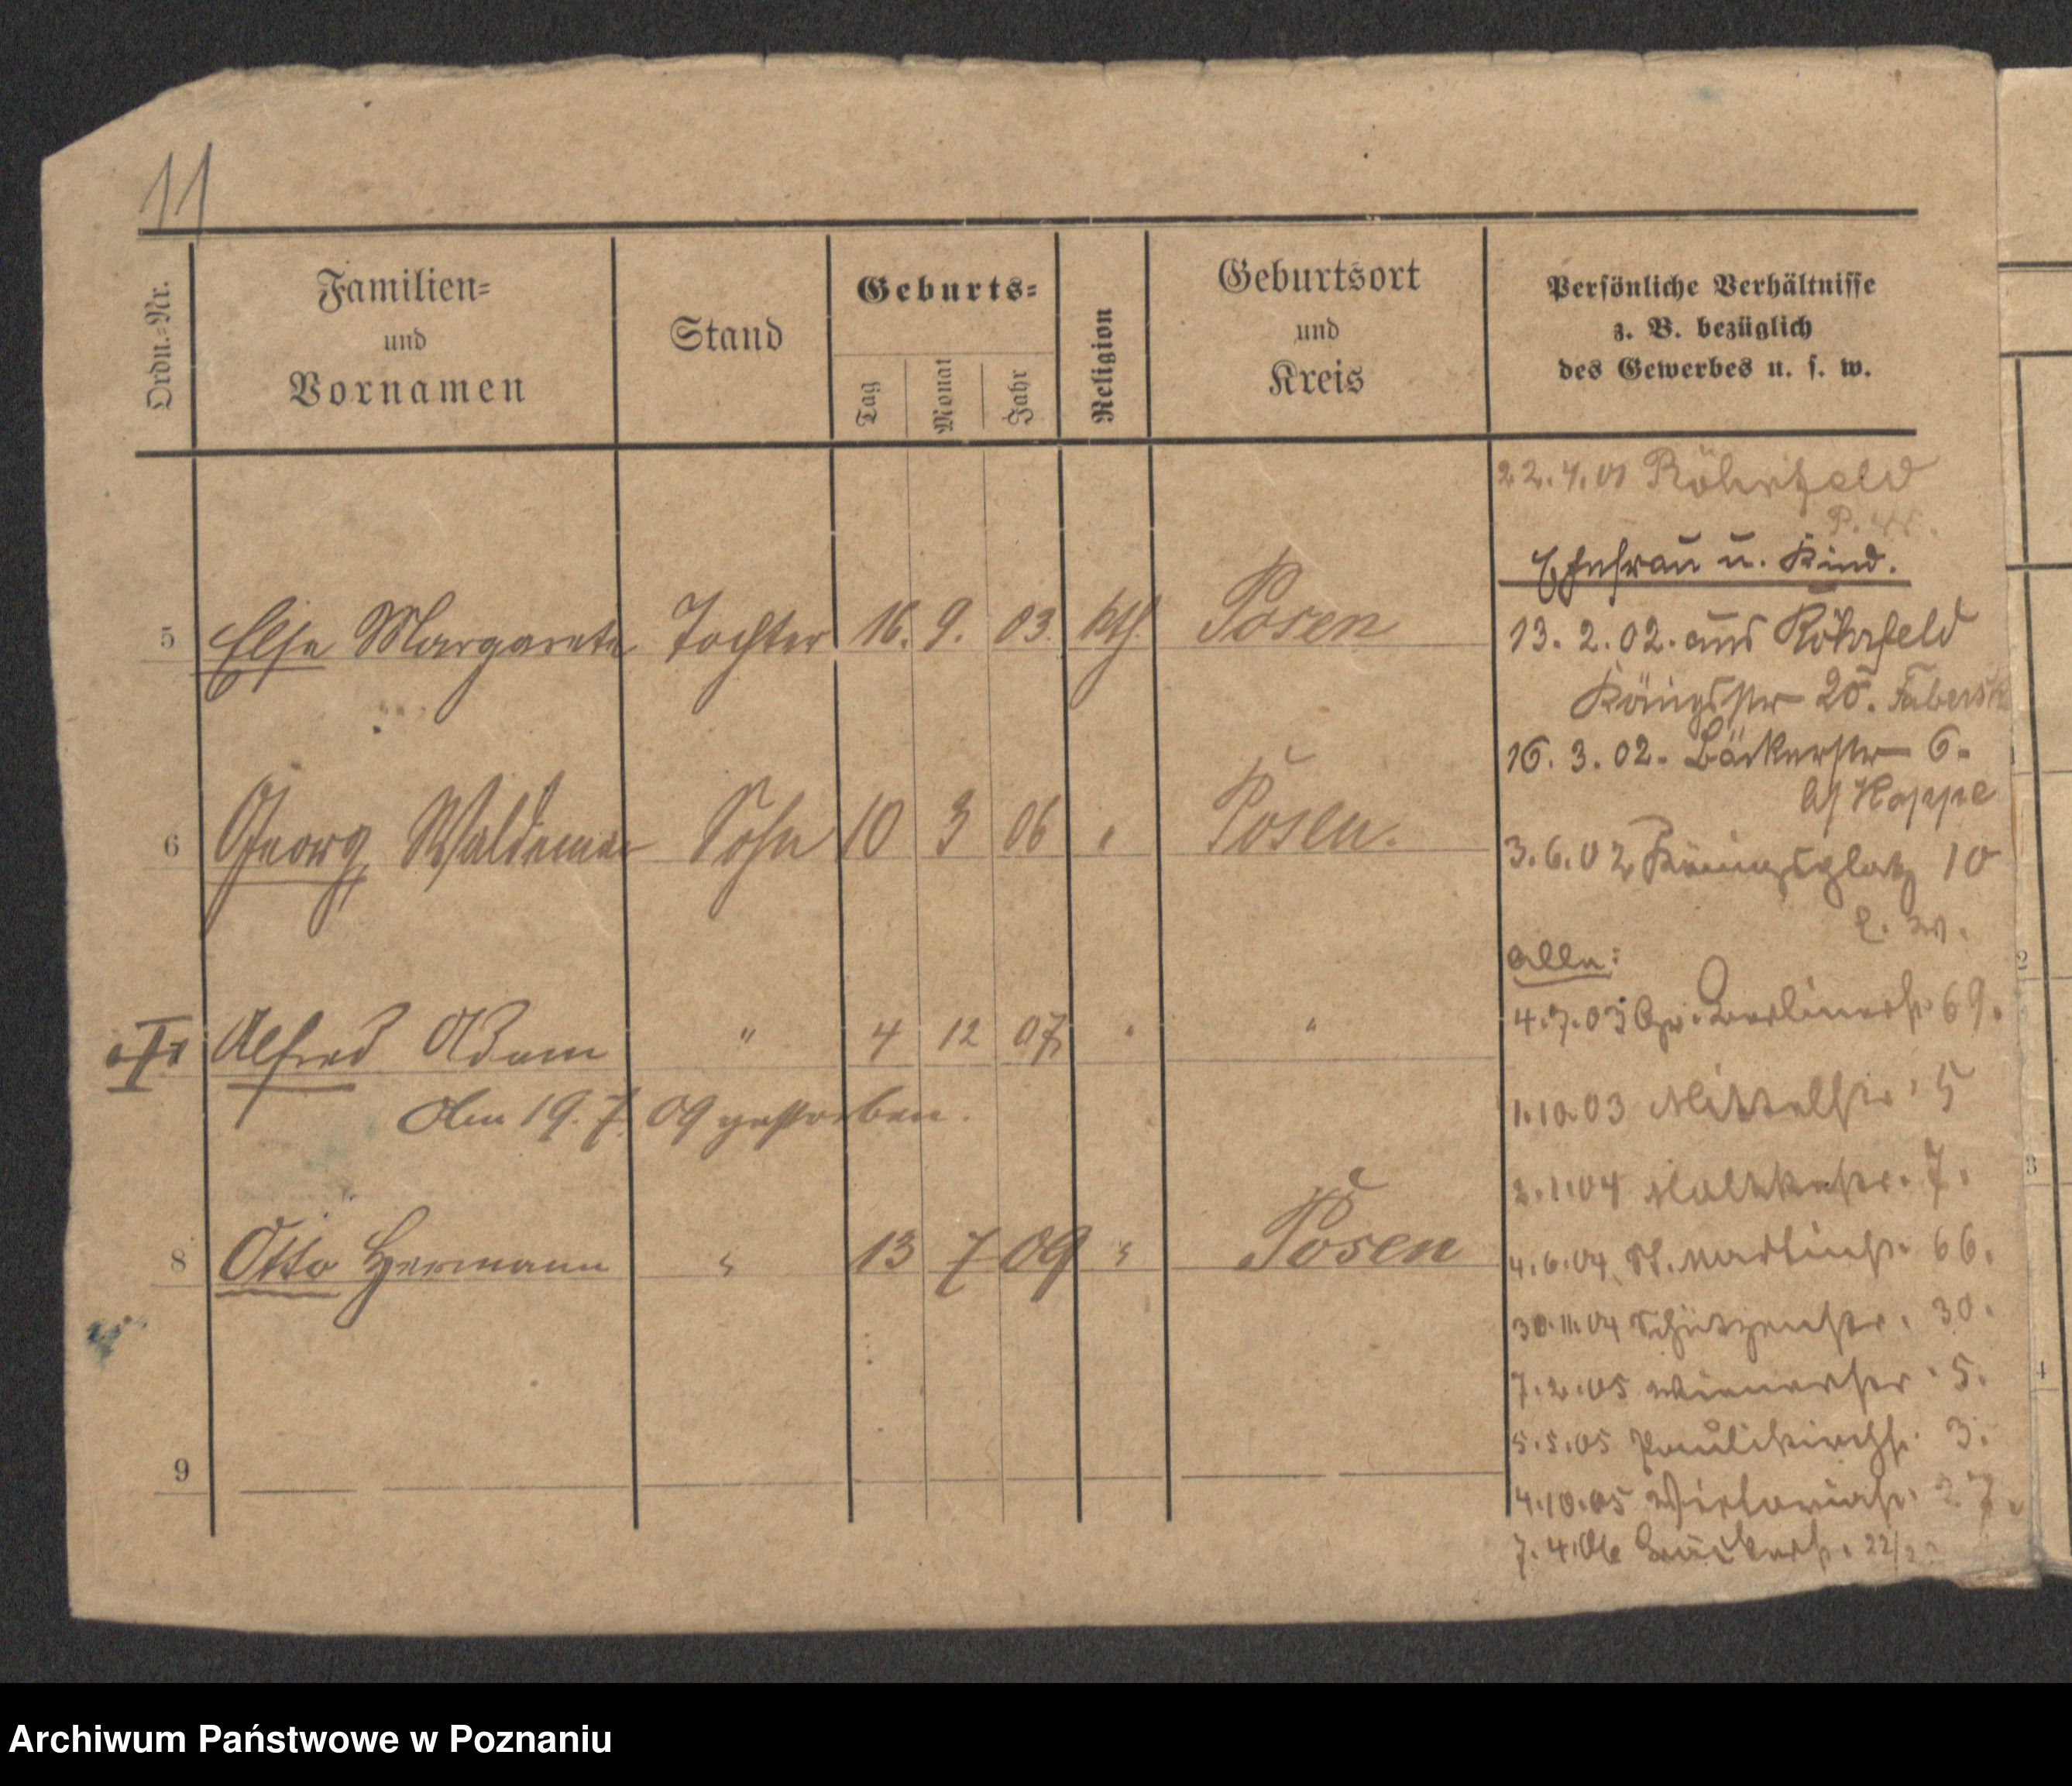 11
Ordn.=Nr.
Familien=
und
Vornamen
Stand
Geburts=
Tag
Monat
Jahr
Religion
Geburtsort
und
Kreis
Persönliche Verhältnisse
z. B. bezüglich
des Gewerbes u. s. w.
5 Else Margarete Tochter 16. 9. 03. kth. Posen
6 Georg Waldemar Sohn 10 3 06 " Posen.
Alfred Adam " 4 12 07 " "
Am 19. 7. 09 gestorben.
8 Otto Hermann " 13 7 09 " Posen
9
22.4.01
Ehefrau u. Kind.
13. 2. 02. aus Röhrfeld
Königstr 20.
16. 3. 02. Bäckerstr 6.
bei Hoppe
3. 6. 02 Königsplatz 10
alle:
4.7.03 Gr. Berlinerstr. 69.
1.10.03 Mittelstr. 5
2.1.04 Moltkestr. 7.
4.6.04 St. Martinstr. 66.
30.11.04 Schützenstr. 30.
7.2.05 Wienerstr. 5.
5.5.05 Paulikirchstr. 3.
4.10.05 Victoriastr. 27.
7.4.06
2
3
4
Archiwum Państwowe w Poznaniu